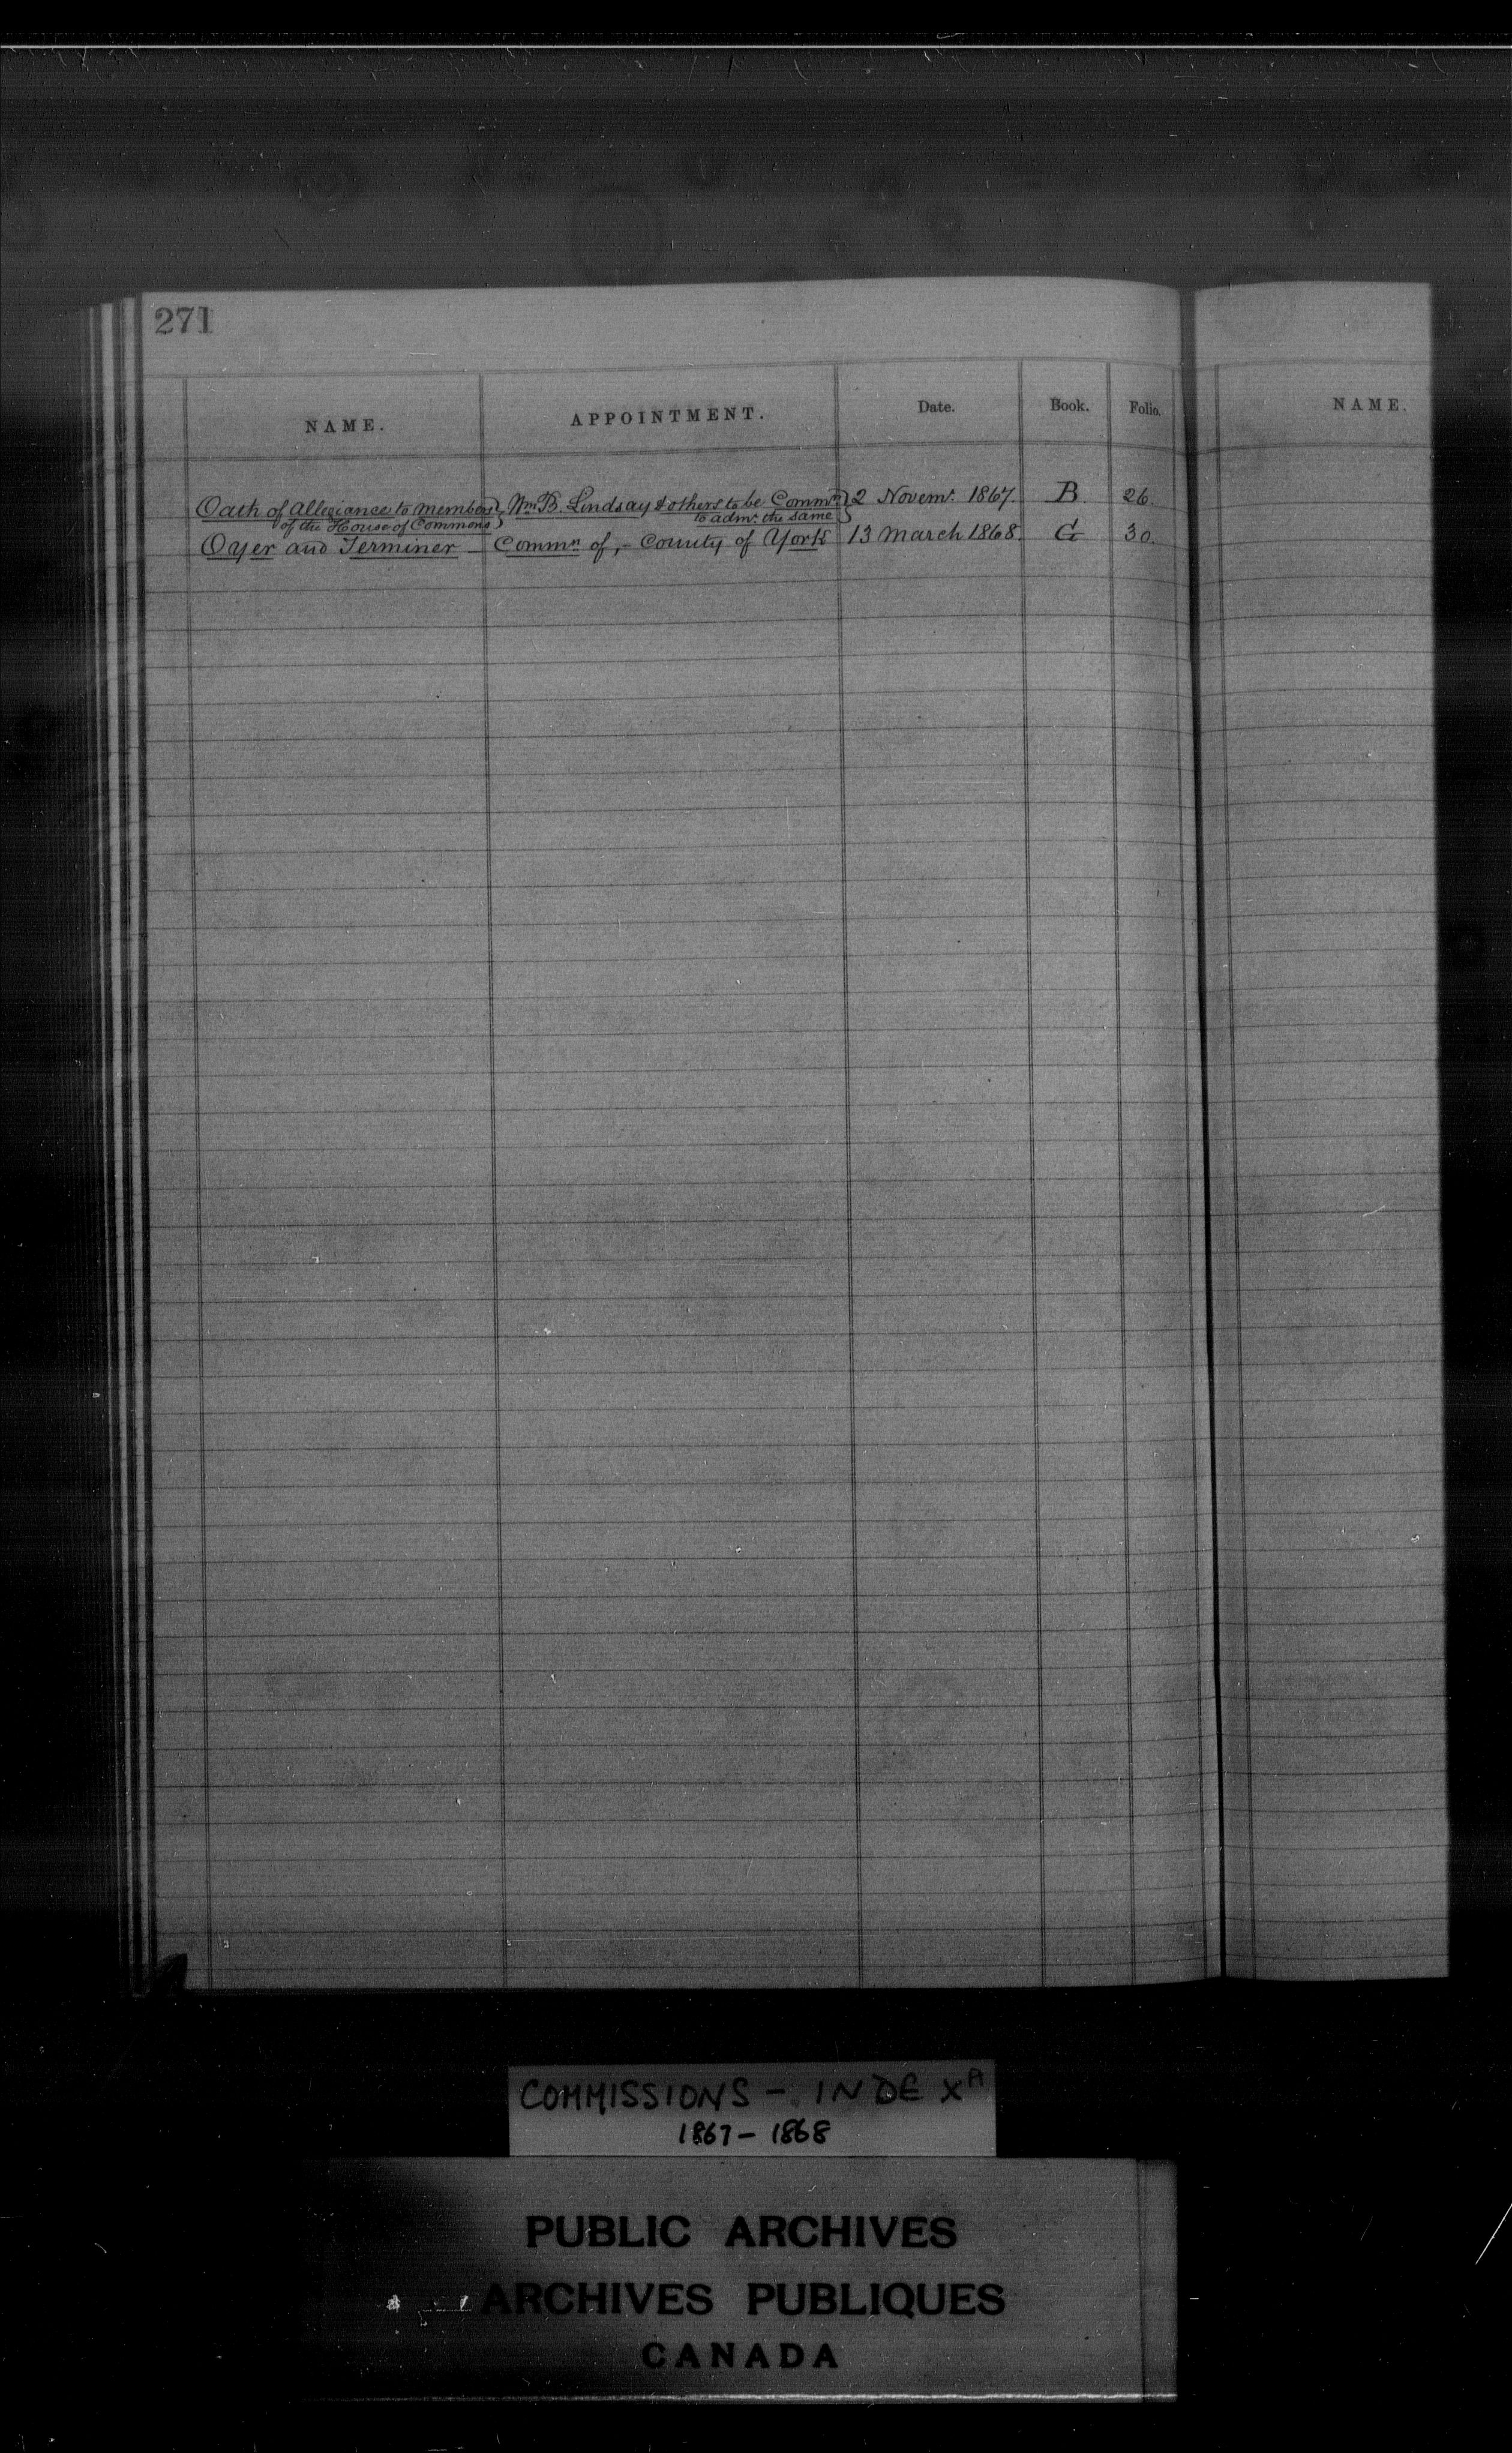 271
NAME. APPOINTMENT. Date. Book. Folio. NAME.
Oath of Allegiance to Members } Wm B. Lindsay & others to be Commrs } 2 Novemr. 1867. B. 26.
of the House of Commons } to admr. the same }
Oyer and Terminer — Commn of, - County of York 13 March 1868. G 30.
COMMISSIONS - INDEX A
1867 - 1868
PUBLIC ARCHIVES
ARCHIVES PUBLIQUES
CANADA